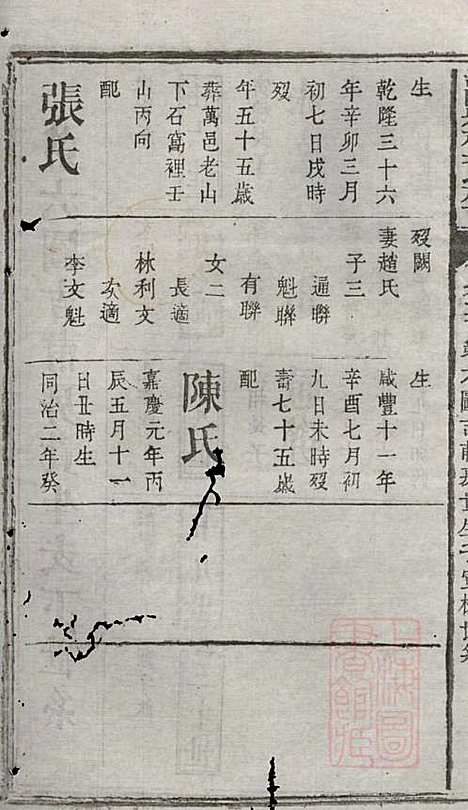 生
乾隆三十六
年辛卯三月
初七日戌時
歿
年五十五歲
葬萬邑老山
下石窩裡壬
山丙向
配
張氏
歿闕
妻趙氏
子三
通聯
魁聯
有聯
女二
長適
林利文
次適
李文魁
生
咸豐十一年
辛酉七月初
九日未時歿
壽七十五歲
配
陳氏
嘉慶元年丙
辰五月十一
日丑時生
同治二年癸
上海圖書館藏